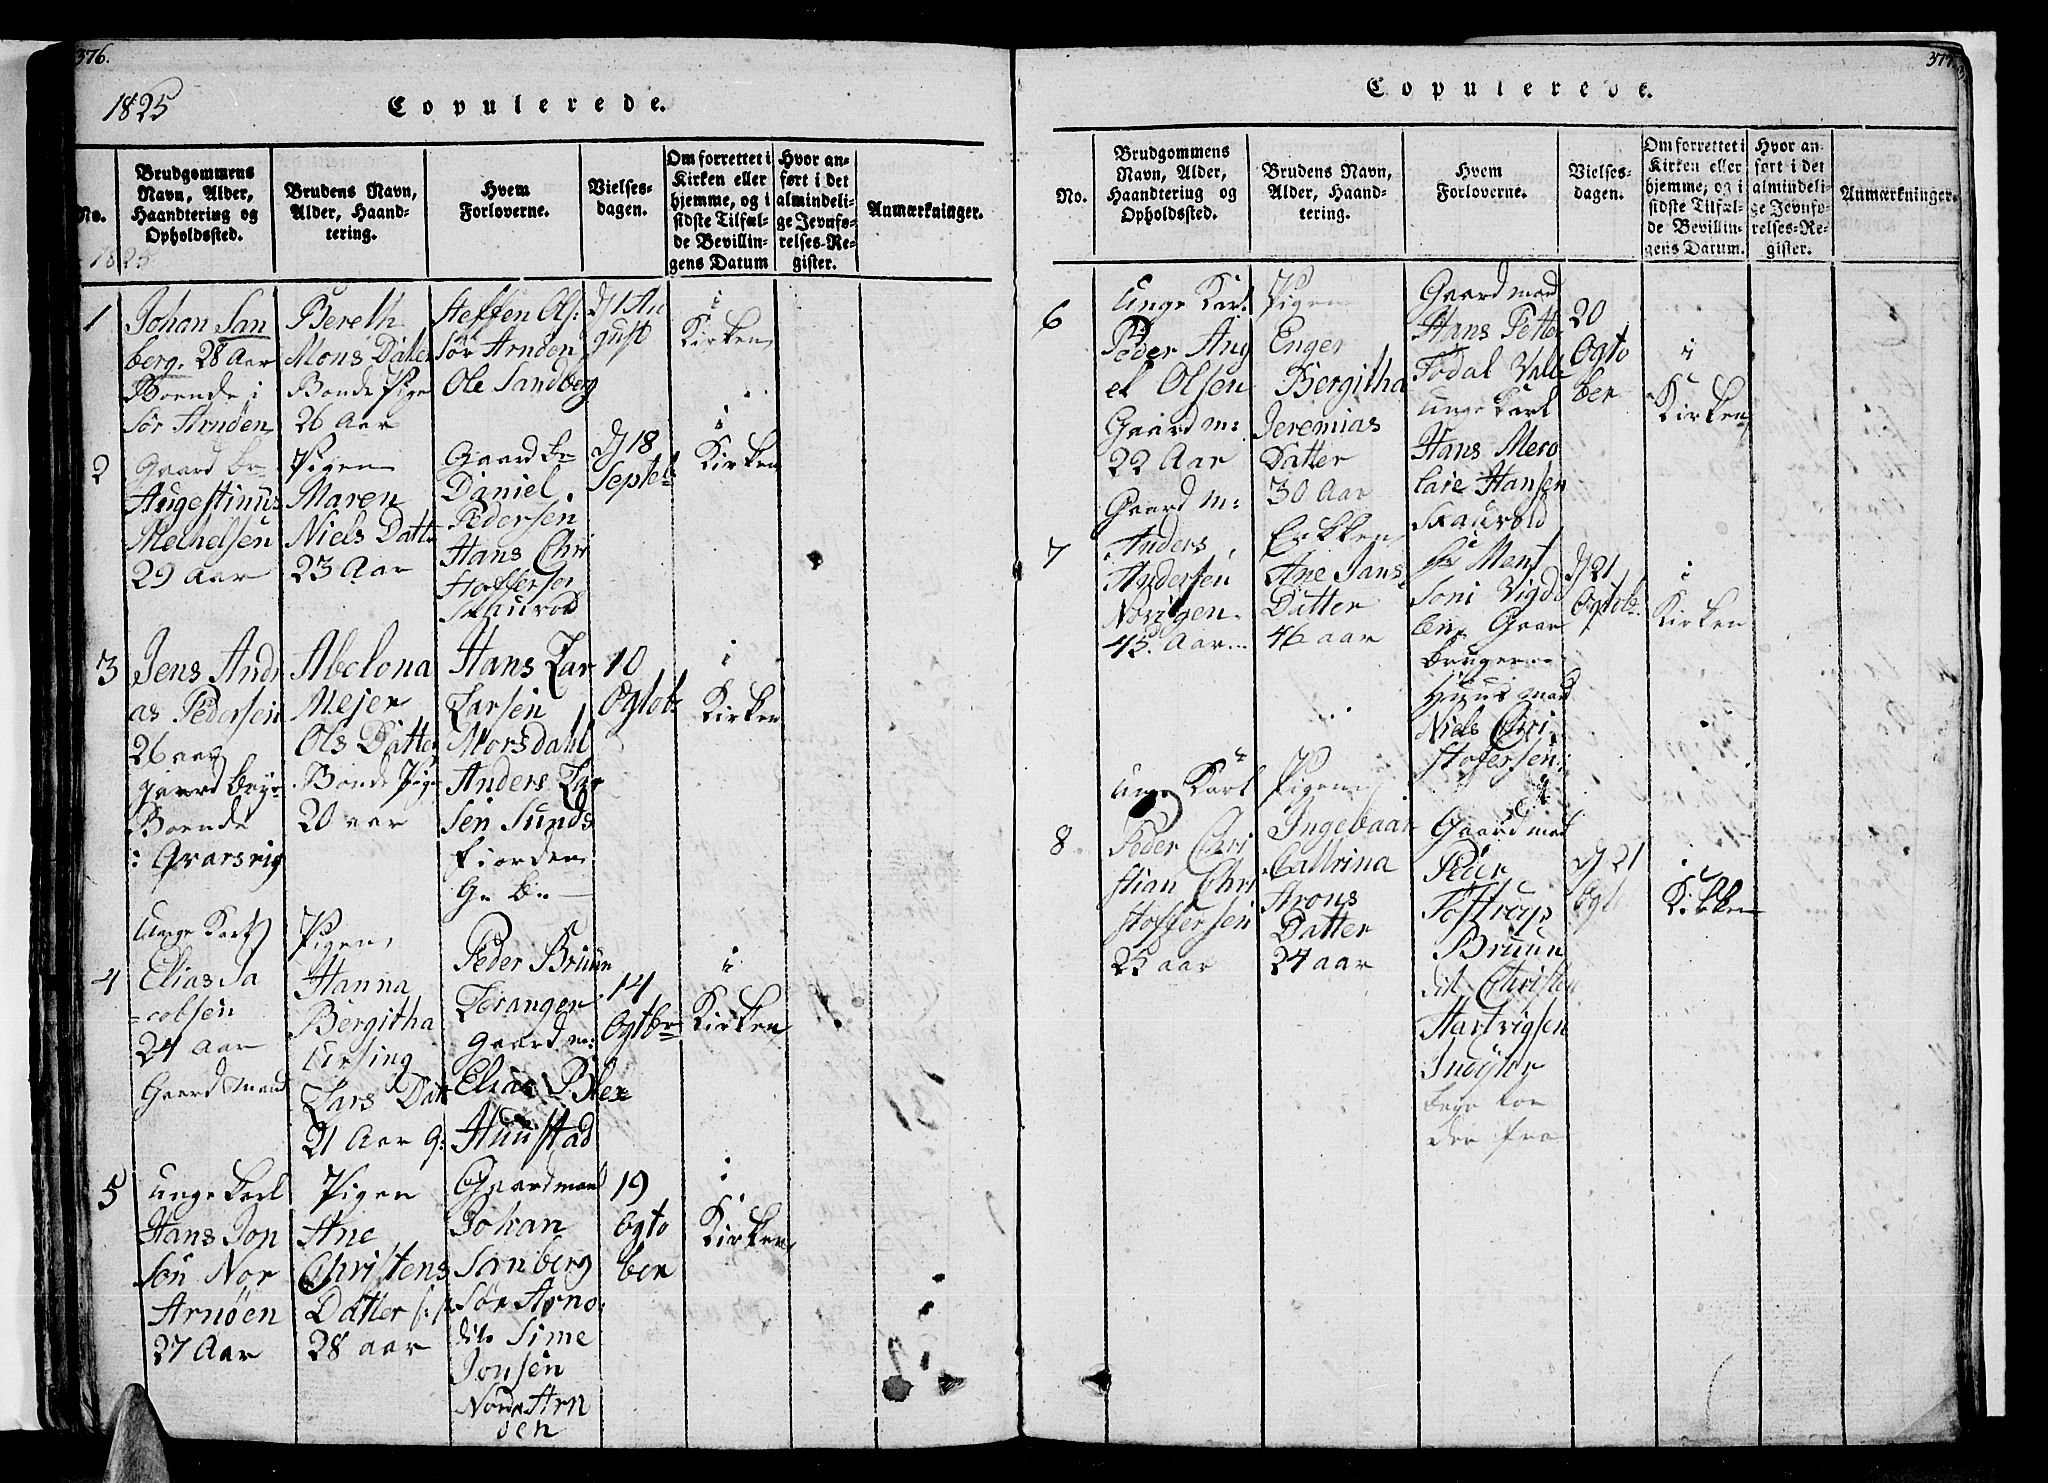 376.
1825
Copulerede.
No.
Brudgommens
Navn, Alder,
Haandtering og
Opholdssted.
Brudens Navn,
Alder, Haand-
tering.
Hvem
Forloverne.
Vielses-
dagen.
Om forrettet i
Kirken eller
hjemme, og i
sidste Tilfæl-
de Bevillin-
gens Datum
Hvor an-
ført i det
almindeli-
ge Jevnfø-
relses-Re-
gister.
Anmærkninger.
1825
1
Johan San
berg. 28 Aar
Boende i
Sør Arnöen
Bereth
Mons Datter
Bonde Pige
26 Aar
Steffen Ols:
Sör Arnöen
Ole Sandberg
D 1 Au
gust
i
Kirken
2
Gaard br
Augestinus
Mechelsen
29 Aar
Pigen
Maren
Niels Datt
23 Aar
Gaard br
Daniel
Pedersen
Hans Chri
Stoffersen
D 18
Septe
i
Kirken
3
Jens Andr
as Pedersen
26 aar
gaard
Boende
i
Abelona
Mejer
Ols Datter
Bonde Pige
20 aar
Hans Lar
Larsen
Morsdahl
Anders La
sen Sunds
fiorden
G. b.
10
Ogtob
i
Kirken
4
Unge Karl
Elias Ja
cobsen
24 Aar
Gaard mand
Pigen
Hanna
Bergitha
Ursing
Lars Dat
21 Aar g:
Peder Bruun
Torangen
Gaard m:
Elias
Huustad
14
Ogtbr
i
Kirken
5
unge karl
Hans Jon
sen Nor
Arnöen
27 Aar
Pigen
Ane
Christens
Datter
28 aar
Gaardmand
Johan
Sanberg
Sör Arnö
dit. Sime
Jonsen
Nord Arn
öen
19
Ogto
ber
i
Kirken
377
Copulerede.
No.
Brudgommens
Navn, Alder,
Haandtering og
Opholdssted.
Brudens Navn,
Alder, Haand-
tering.
Hvem
Forloverne.
Vielses-
dagen.
Om forrettet i
Kirken eller
hjemme, og i
sidste Tilfæl-
de Bevillin-
gens Datum.
Hvor an-
ført i det
almindeli-
ge Jevnfø-
relses-Re-
gister.
Anmærkninger.
6
Unge Karl
Peder Ang
el Olsen
Gaard m:
22 Aar
Gaard m:
Pigen
Enger
Bergitha
Jeremias
Datter
30 Aar
Gaardmand
Hans Petter
Fodal
unge Karl
Hans
Hansen
20
Ogto
ber
i
Kirken
7
Anders
Andersen
45 Aar
Enken
Ane Jans
Datter
46 aar
Gaar
bruger
Huusmand
Niels Chri
stofersen
D 21
Ogtob
i
Kirken
8
unge Karl
Peder Chri
stian Chri
stoffersen
25 aar
Pigen
Ingebaar
Cathrina
Arons
Datter
24 aar
Gaardmand
Peder
Tostrup
Bruun
dit Christen
Hartvigsen
Indyr
D 21
Ogto
i
Kirken